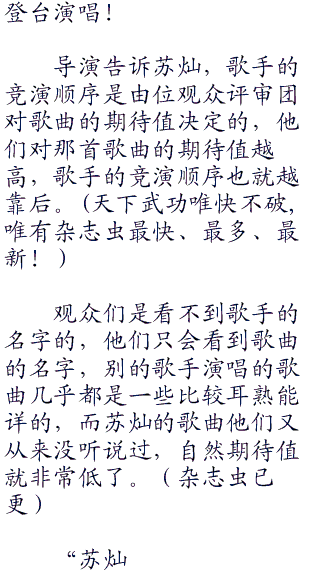 登台演唱！
导演告诉苏灿，歌手的
竞演顺序是由位观众评审团
对歌曲的期待值决定的，他
们对那首歌曲的期待值越
高，歌手的竞演顺序也就越
靠后。(天下武功唯快不破,
唯有杂志虫最快、最多、最
新！)
观众们是看不到歌手的
名字的，他们只会看到歌曲
的名字，别的歌手演唱的歌
曲几乎都是一些比较耳熟能
详的，而苏灿的歌曲他们又
从来没听说过，自然期待值
就非常低了。（杂志虫已
更）
“苏灿